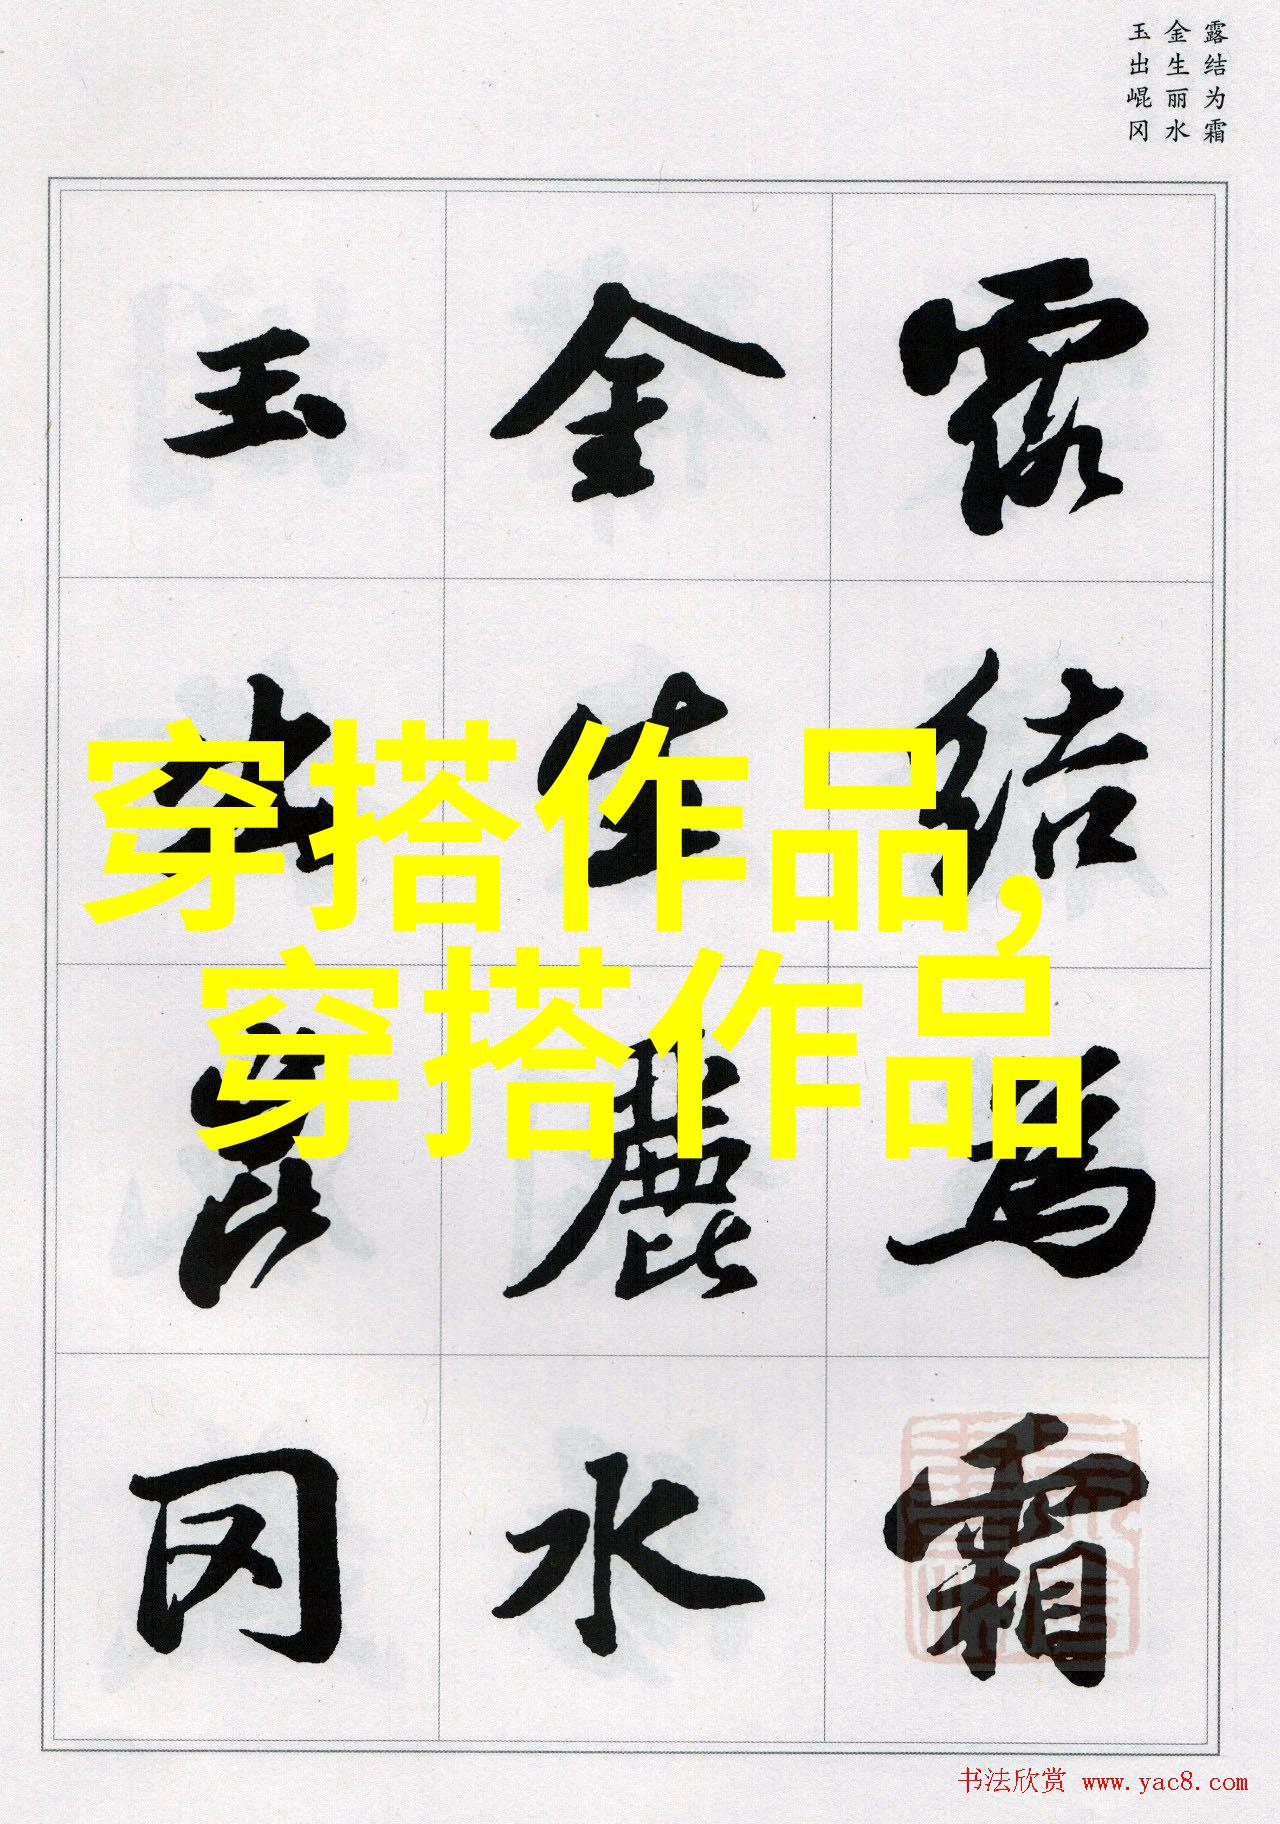 露结为霜
金生丽水
玉出崐冈
露結為霜
金生麗水
玉出崑冈
穿搭作品,
穿搭作品
书法欣赏 www.yac8.com